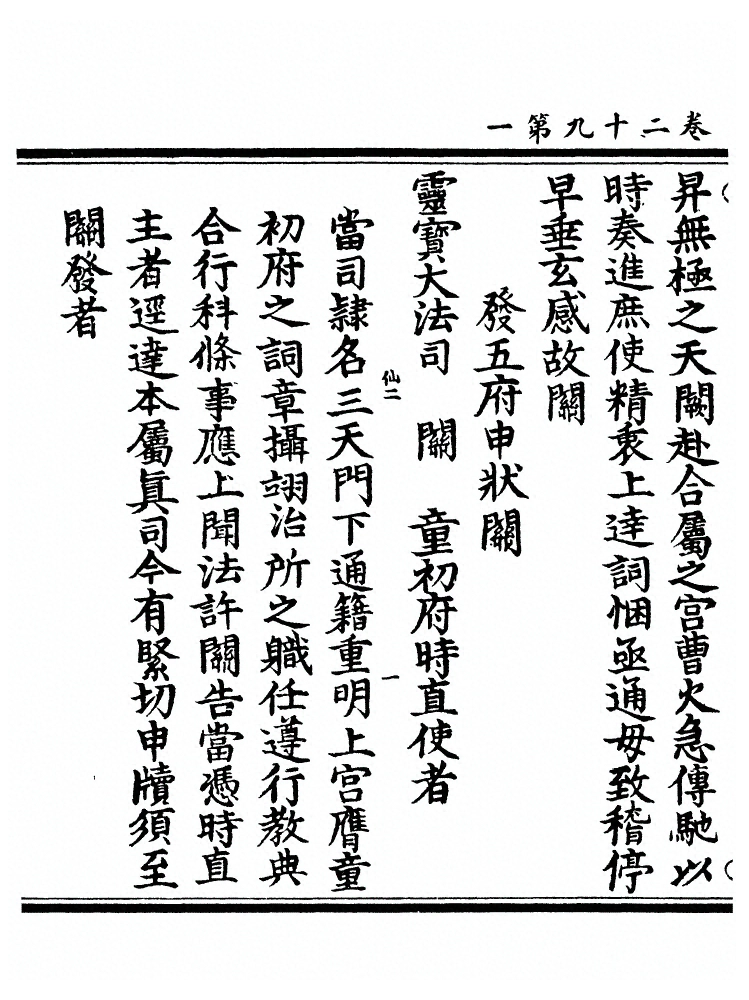 卷二十九第一
昇無極之天闕赴合屬之宫曹火急傳馳以
時奏進庶使精衷上達詞悃亟通毋致稽停
早垂玄感故關
發五府申狀關
靈寶大法司 關 童初府時直使者
仙二 一
當司隷名三天門下通籍重明上宫膺童
初府之詞章攝翊治所之職任遵行教典
合行科條事應上聞法許關告當憑時直
主者逕達本屬眞司今有緊切申牘須至
關發者